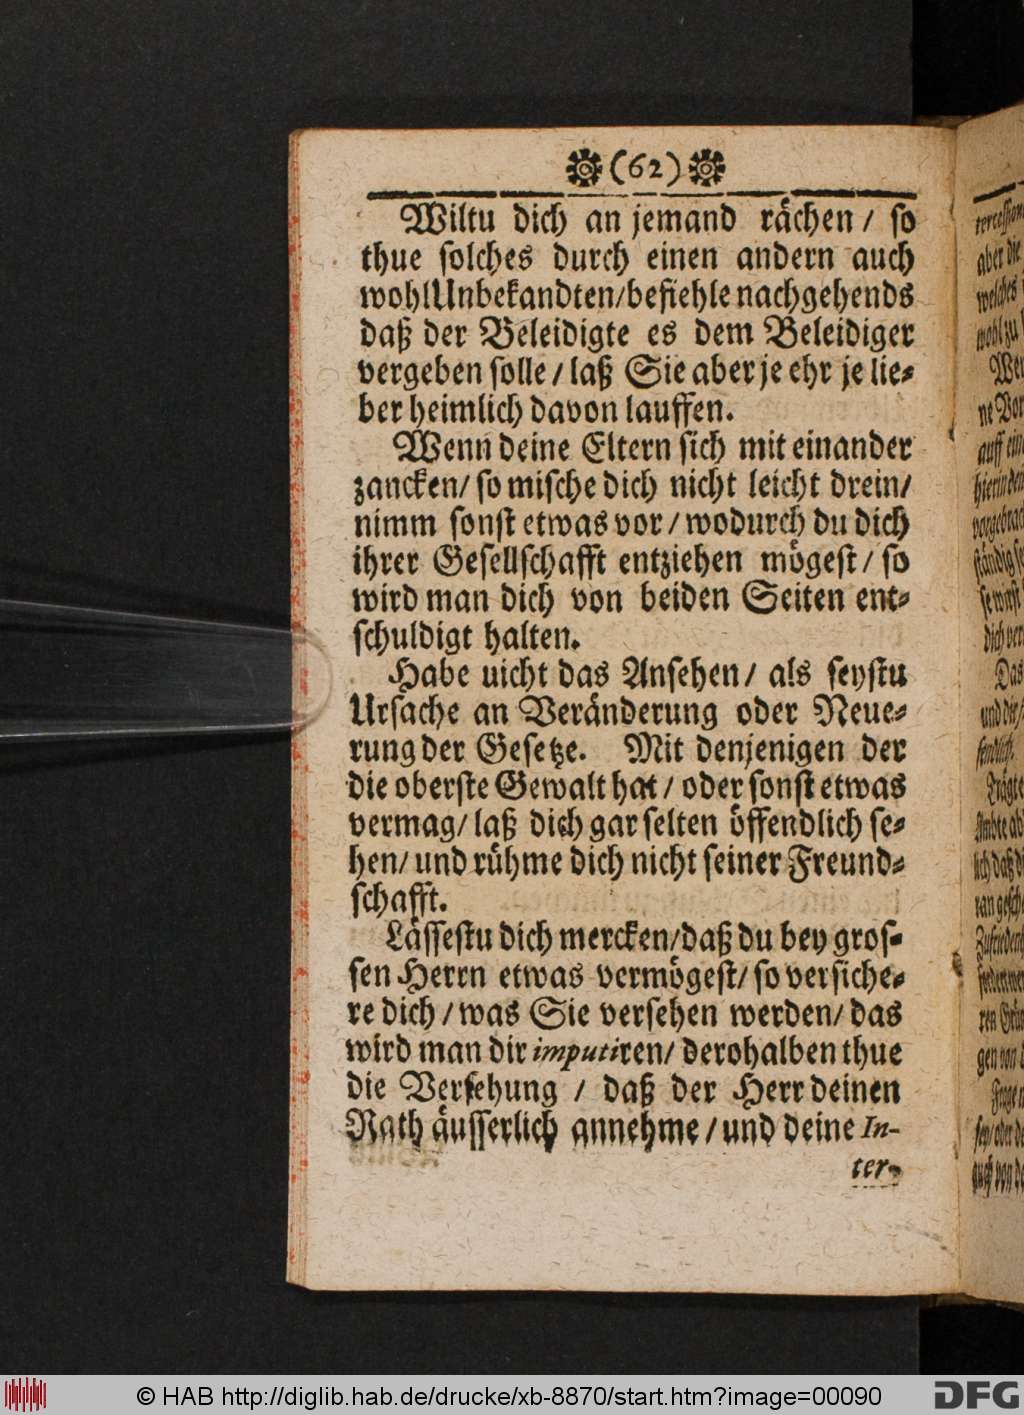 (62)
Wiltu dich an jemand rächen / so
thue solches durch einen andern auch
wohl Unbekandten / befiehle nachgehends
daß der Beleidigte es dem Beleidiger
vergeben solle / laß Sie aber je ehr je lie-
ber heimlich davon lauffen.
Wenn deine Eltern sich mit einander
zancken / so mische dich nicht leicht drein /
nimm sonst etwas vor / wodurch du dich
ihrer Gesellschafft entziehen mögest / so
wird man dich von beiden Seiten ent-
schuldigt halten.
Habe uicht das Ansehen / als seystu
Ursache an Veränderung oder Neue-
rung der Gesetze. Mit denjenigen der
die oberste Gewalt hat / oder sonst etwas
vermag / laß dich gar selten öffendlich se-
hen / und rühme dich nicht seiner Freund-
schafft.
Lässestu dich mercken / daß du bey gros-
sen Herrn etwas vermögest / so versiche-
re dich / was Sie versehen werden / das
wird man dir imputiren / derohalben thue
die Versehung / daß der Herr deinen
Rath äusserlich annehme / und deine In-
ter-
© HAB http://diglib.hab.de/drucke/xb-8870/start.htm?image=00090
DFG